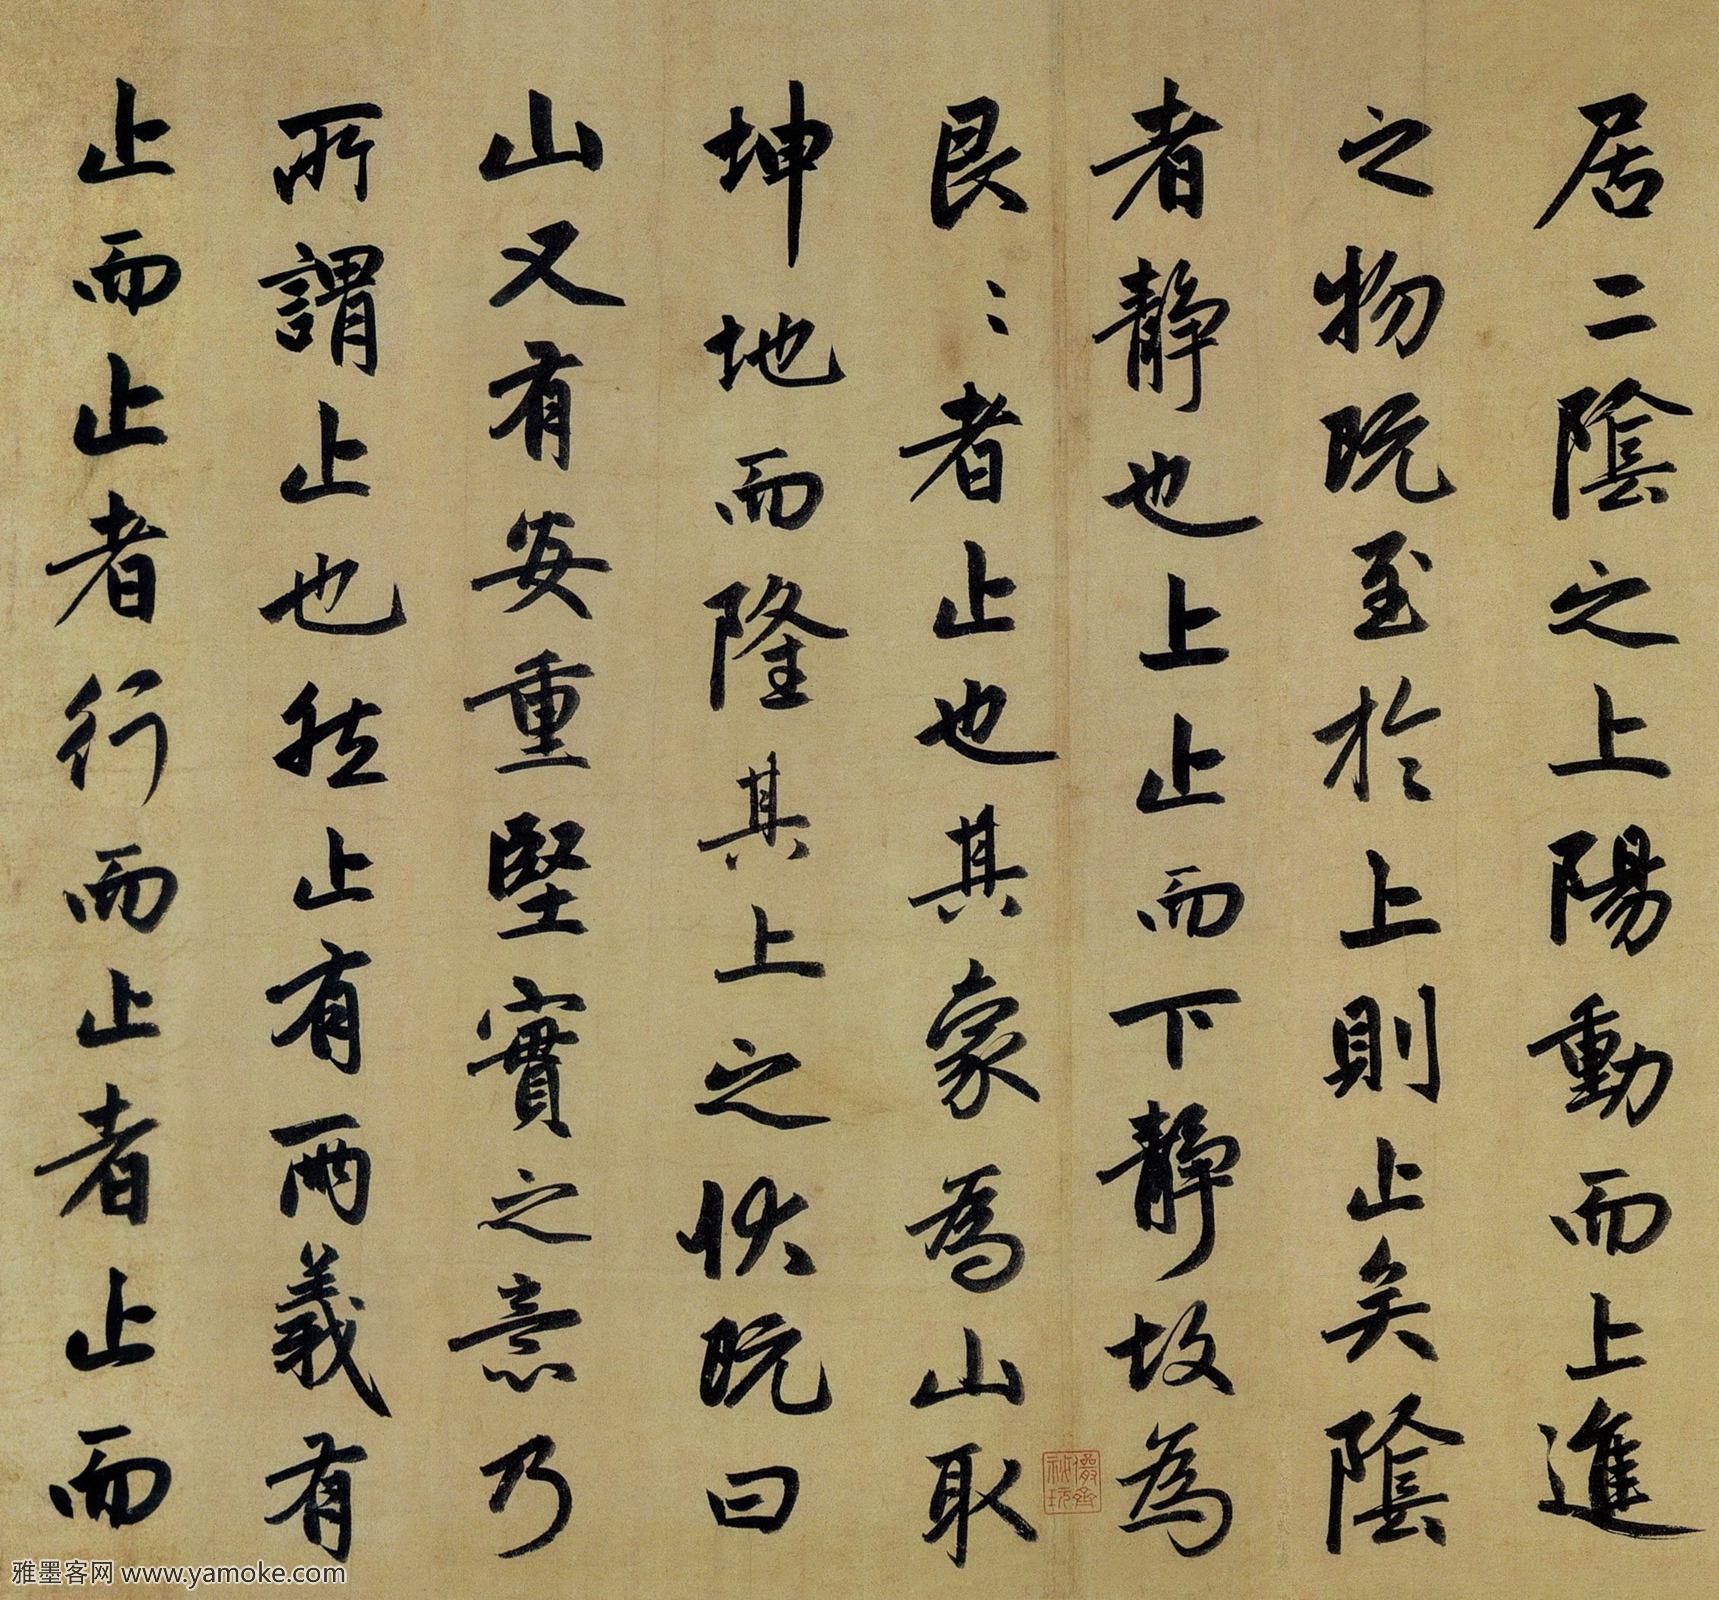 居二陰之上陽動而上進
之物既至於上則止矣陰
者靜也上止而下靜故為
艮〻者止也其象為山取
坤地而隆其上之狀既曰
山又有安重堅實之意乃
所謂止也然止有兩義有
止而止者行而止者止而
儼齋秘玩
雅墨客网 www.yamoke.com